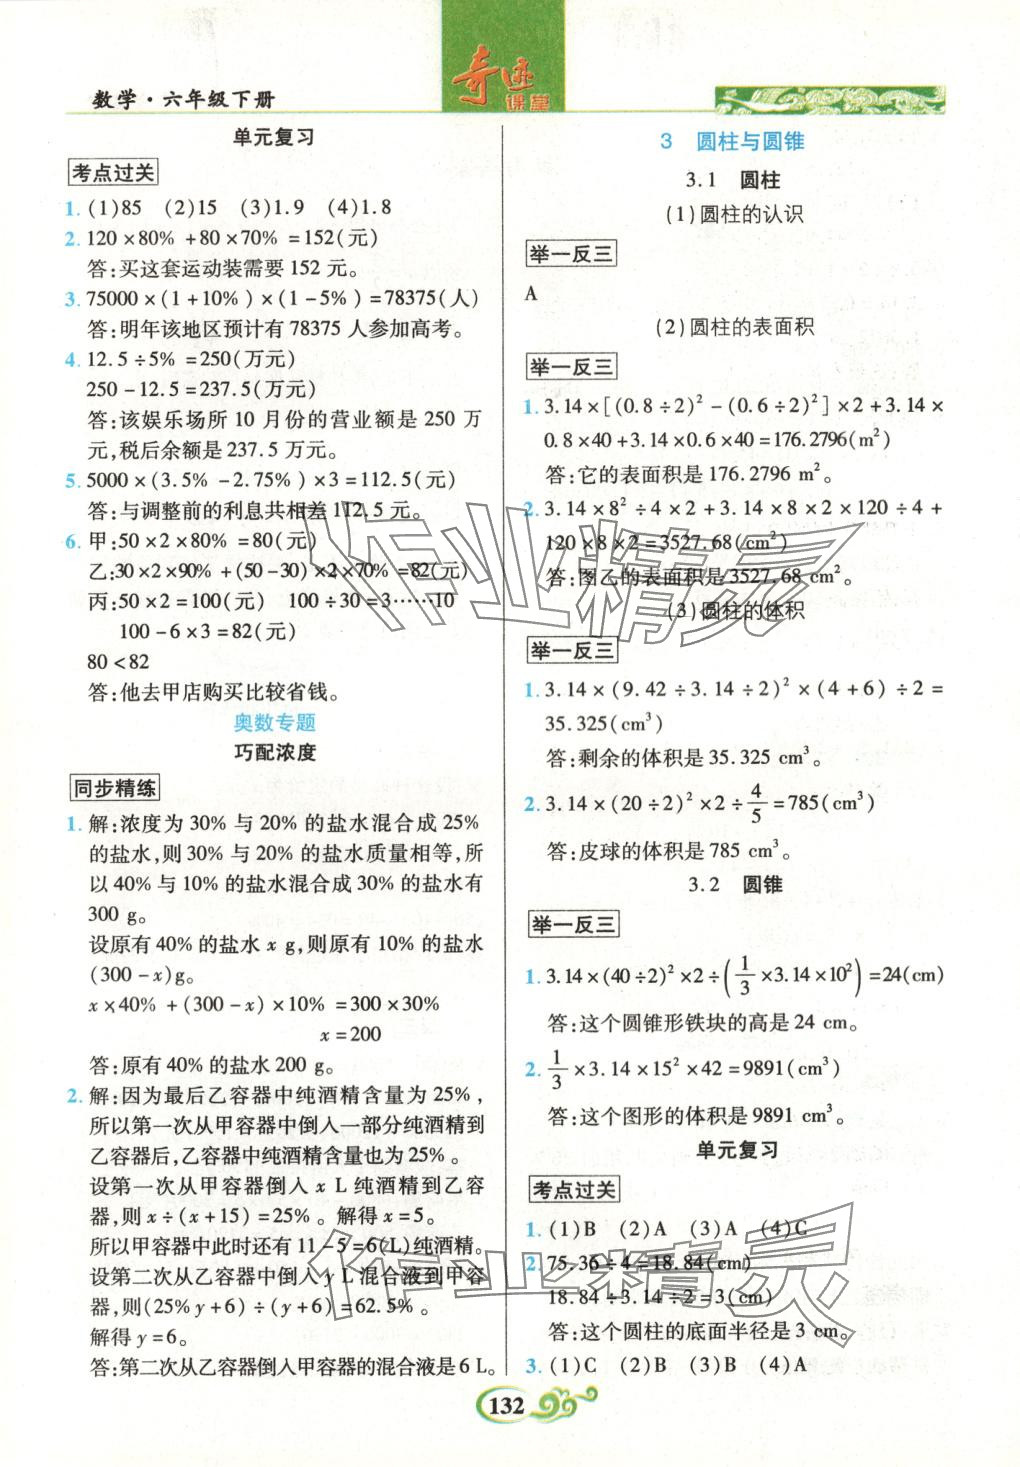 数学·六年级下册
奇迹
课堂
单元复习
考点过关
1. (1)85 (2)15 (3)1.9 (4)1.8
2. 120×80% +80×70% =152(元)
答:买这套运动装需要 152 元。
3. 75000×(1+10%)×(1-5%)=78375(人)
答:明年该地区预计有 78375 人参加高考。
4. 12.5÷5% =250(万元)
250-12.5=237.5(万元)
答:该娱乐场所 10 月份的营业额是 250 万
元,税后余额是 237.5 万元。
5. 5000×(3.5% -2.75%)×3=112.5(元)
答:与调整前的利息共相差 112.5 元。
6. 甲:50×2×80% =80(元)
乙:30×2×90% +(50-30)×2×70% =82(元)
丙:50×2=100(元) 100÷30=3……10
100-6×3=82(元)
80<82
答:他去甲店购买比较省钱。
奥数专题
巧配浓度
同步精练
1. 解:浓度为 30% 与 20% 的盐水混合成 25%
的盐水,则 30% 与 20% 的盐水质量相等,所
以 40% 与 10% 的盐水混合成 30% 的盐水有
300 g。
设原有 40% 的盐水 x g,则原有 10% 的盐水
(300-x)g。
x×40% +(300-x)×10% =300×30%
x=200
答:原有 40% 的盐水 200 g。
2. 解:因为最后乙容器中纯酒精含量为 25%,
所以第一次从甲容器中倒入一部分纯酒精到
乙容器后,乙容器中纯酒精含量也为 25%。
设第一次从甲容器倒入 x L 纯酒精到乙容
器,则 x÷(x+15)=25%。解得 x=5。
所以甲容器中此时还有 11-5=6(L)纯酒精。
设第二次从乙容器中倒入 y L 混合液到甲容
器,则(25%y+6)÷(y+6)=62.5%。
解得 y=6。
答:第二次从乙容器倒入甲容器的混合液是 6 L。
3 圆柱与圆锥
3.1 圆柱
(1)圆柱的认识
举一反三
A
(2)圆柱的表面积
举一反三
1. 3.14×[(0.8÷2)²-(0.6÷2)²]×2+3.14×
0.8×40+3.14×0.6×40=176.2796(m²)
答:它的表面积是 176.2796 m²。
2. 3.14×8²÷4×2+3.14×8×2×120÷4+
120×8×2=3527.68(cm²)
答:图乙的表面积是 3527.68 cm²。
(3)圆柱的体积
举一反三
1. 3.14×(9.42÷3.14÷2)²×(4+6)÷2=
35.325(cm³)
答:剩余的体积是 35.325 cm³。
2. 3.14×(20÷2)²×2÷4/5=785(cm³)
答:皮球的体积是 785 cm³。
3.2 圆锥
举一反三
1. 3.14×(40÷2)²×2÷(1/3×3.14×10²)=24(cm)
答:这个圆锥形铁块的高是 24 cm。
2. 1/3×3.14×15²×42=9891(cm³)
答:这个图形的体积是 9891 cm³。
单元复习
考点过关
1. (1)B (2)A (3)A (4)C
2. 75.36÷4=18.84(cm)
18.84÷3.14÷2=3(cm)
答:这个圆柱的底面半径是 3 cm。
3. (1)C (2)B (3)B (4)A
作业精灵
作业精灵
132